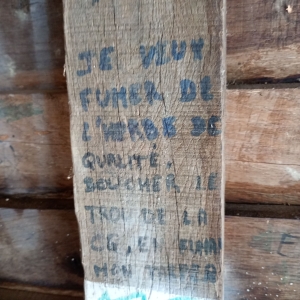 JE VEUT
FUMER DE
L'HERBE DE
QUALITÉ.
BOUCHER LE
TROU DE LA
CG, ET
MON